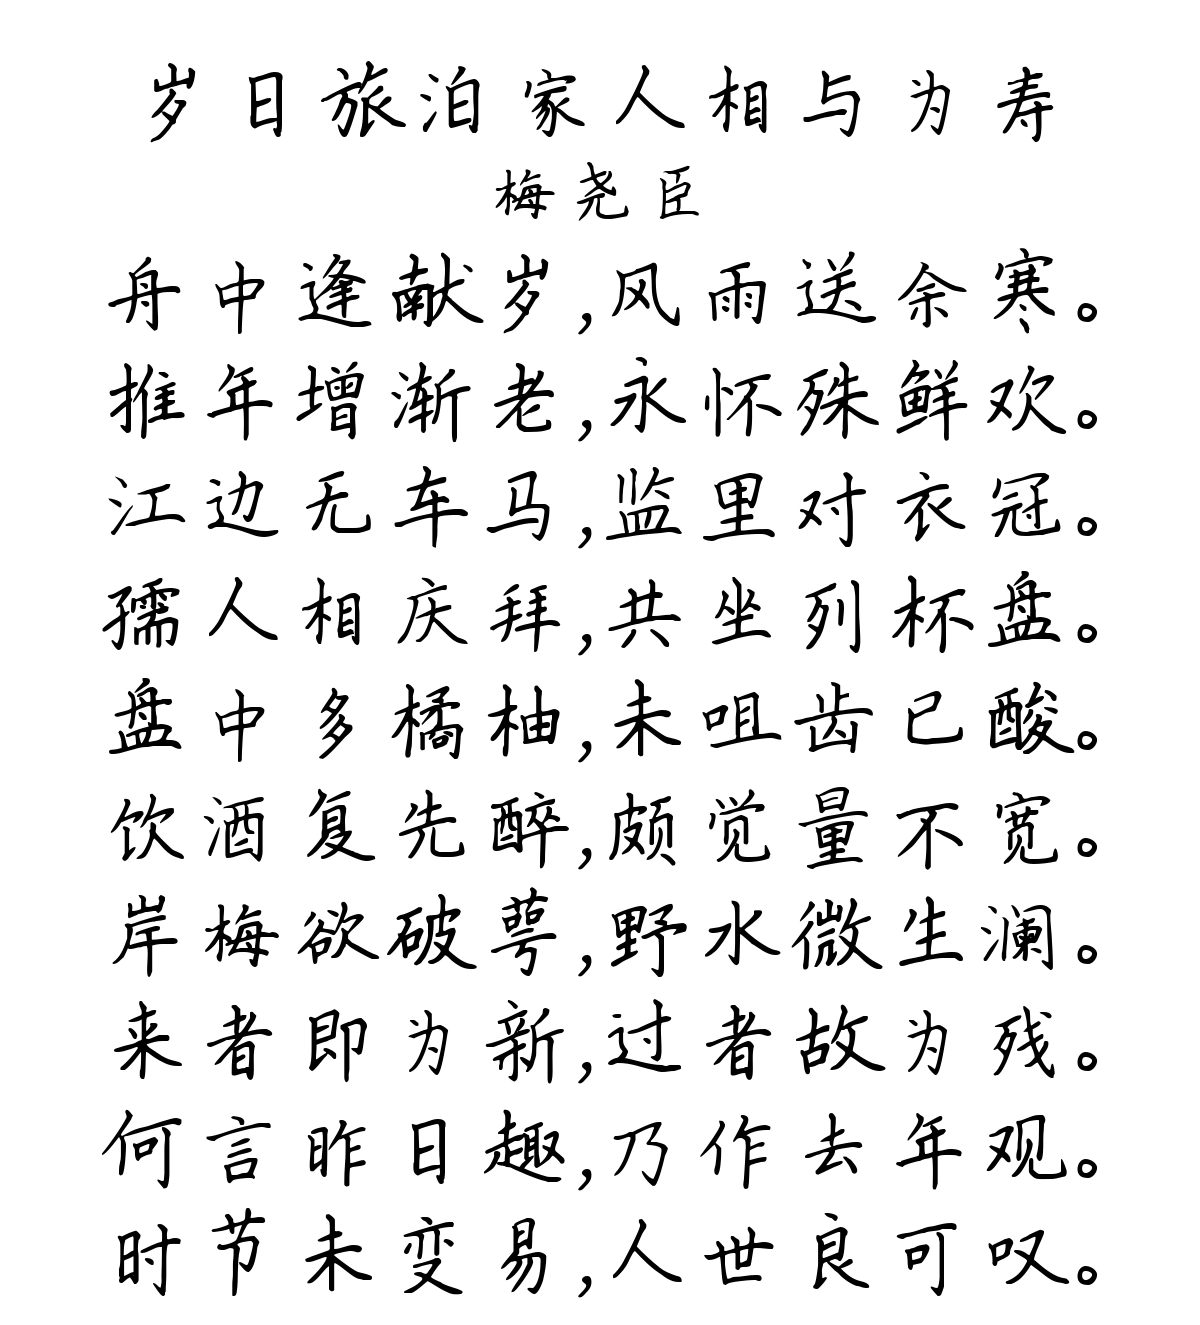 岁日旅泊家人相与为寿
梅尧臣
舟中逢献岁,风雨送余寒。
推年增渐老,永怀殊鲜欢。
江边无车马,监里对衣冠。
孺人相庆拜,共坐列杯盘。
盘中多橘柚,未咀齿已酸。
饮酒复先醉,颇觉量不宽。
岸梅欲破萼,野水微生澜。
来者即为新,过者故为残。
何言昨日趣,乃作去年观。
时节未变易,人世良可叹。